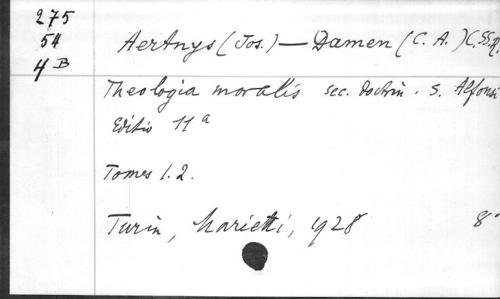 275
54
4 B
Aertnys (Jos.) — Damen (C. A.) C.SS.R.
Theologia moralis sec. doctrin. S. Alfonsi
Editio 11a
Tomes 1.2.
Turin, Marietti, 1928 8°